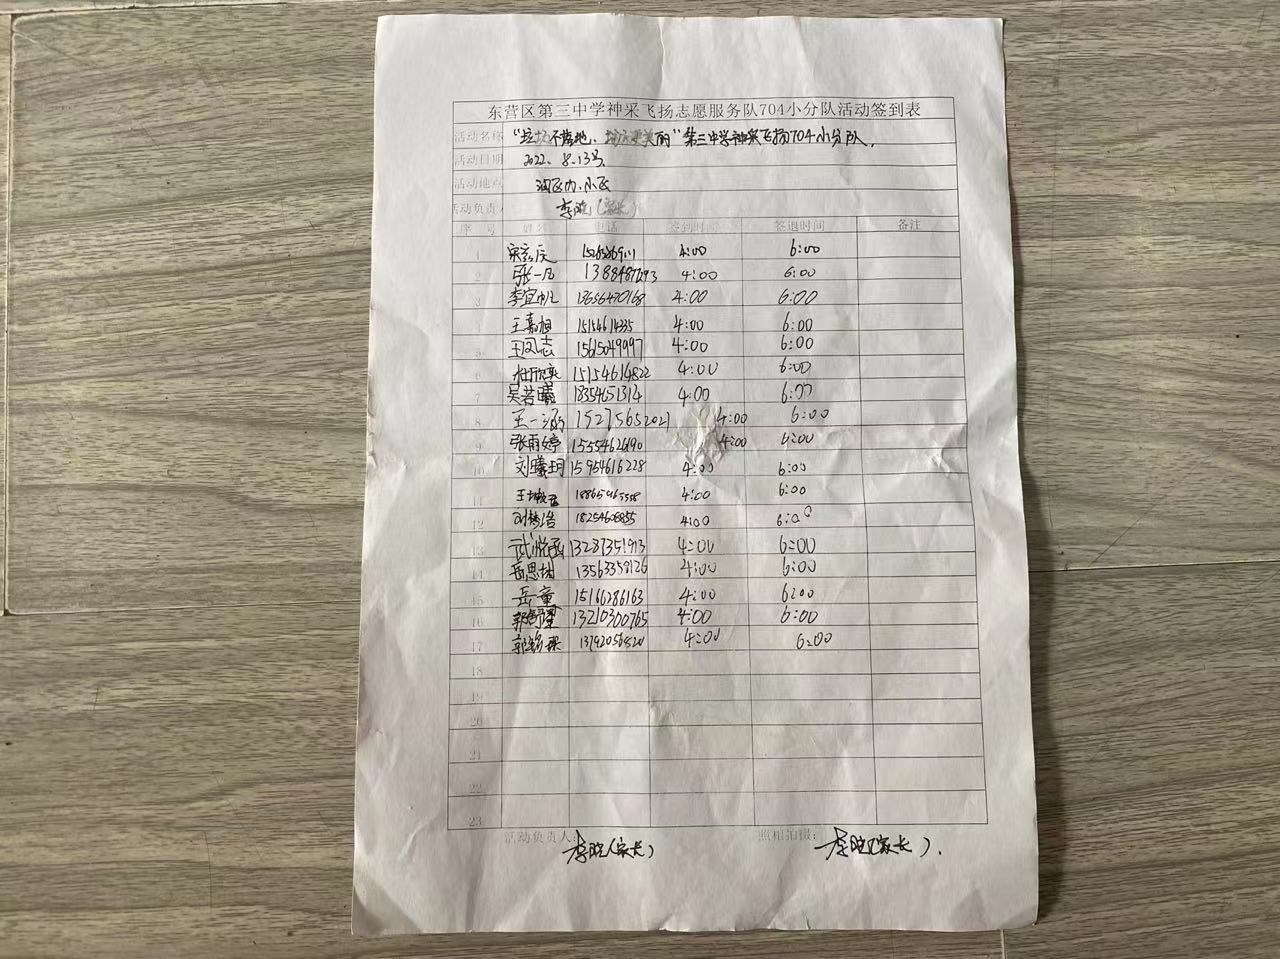 东营区第三中学神采飞扬志愿服务队704小分队活动签到表
活动名称 "垃圾不落地, 更美丽"第三中学神采飞扬704小分队.
活动日期 2022. 8.13号.
活动地点 小区
活动负责人 李晓(家长)
序 号 姓名 电话 签到时间 签退时间 备注
1 4:00 6:00
2 张一凡 4:00 6:00
3 13656470168 4:00 6:00
4 王嘉旭 15154614335 4:00 6:00
5 王凤志 15615049997 4:00 6:00
6 15154614822 4:00 6:00
7 吴若曦 18354651314 4:00 6:00
8 王一涵 15275652021 4:00 6:00
9 张雨婷 4:00 6:00
10 刘曦玥 15954616228 4:00 6:00
11 4:00 6:00
12 刘梦浩 4:00 6:00
13 武悦函 13287351913 4:00 6:00
14 13563359126 4:00 6:00
15 岳童 15166286163 4:00 6:00
16 13210300765 4:00 6:00
17 4:00 6:00
18
19
20
21
22
23
活动负责人: 李晓(家长) 照相拍摄: 李晓(家长).